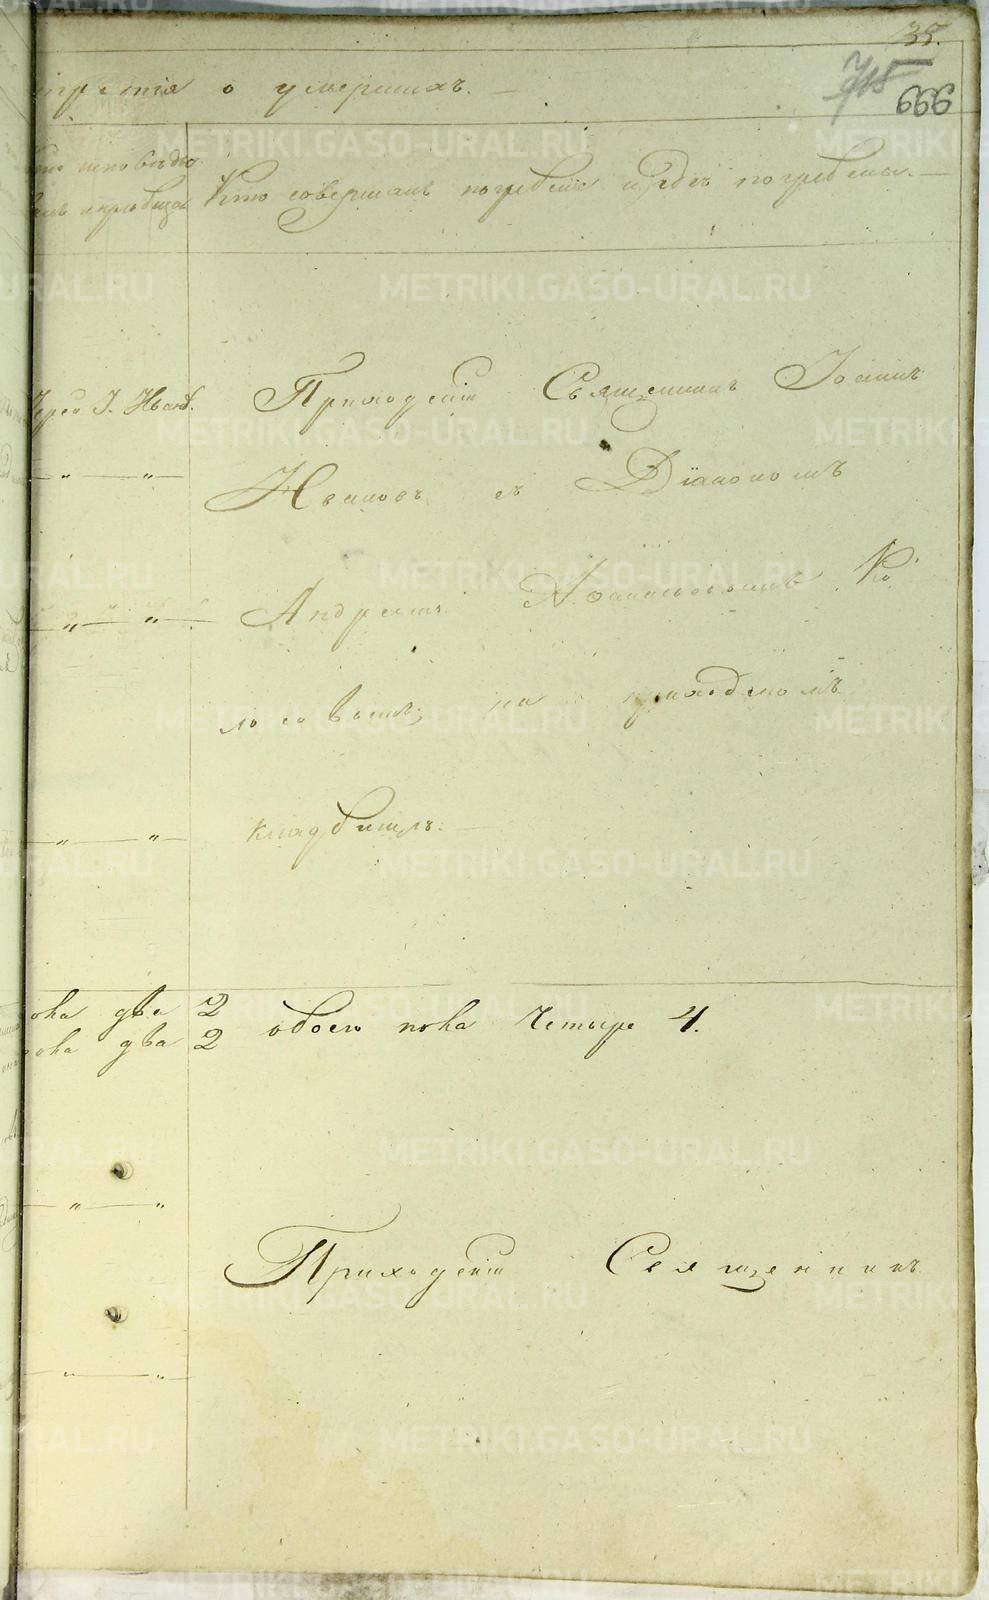 35.
715
666
третія о умершихъ. —
Кто исповѣды
валъ и пріобща
Кто совершалъ погребеніе и гдѣ погребены. —
Іерей І. Иванов.
Приходскій Священникъ Іоаннъ
— " — " —
Ивановъ съ Діакономъ
— " — " —
Андреемъ Ко
лосовымъ; на приходскомъ
— " — " —
кладбищѣ. —
пола два 2
обоего пола Четыре 4.
пола два 2
— " — "
Приходскій Священникъ
— " — " —
METRIKI.GASO-URAL.RU